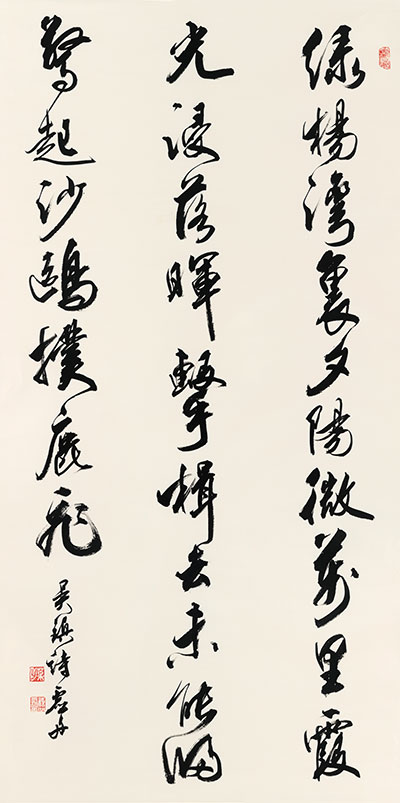 綠楊灣裏夕陽微萬里霞
光浸落暉擊楫去未能歸
驚起沙鷗撲鹿飛
吳鎮詩